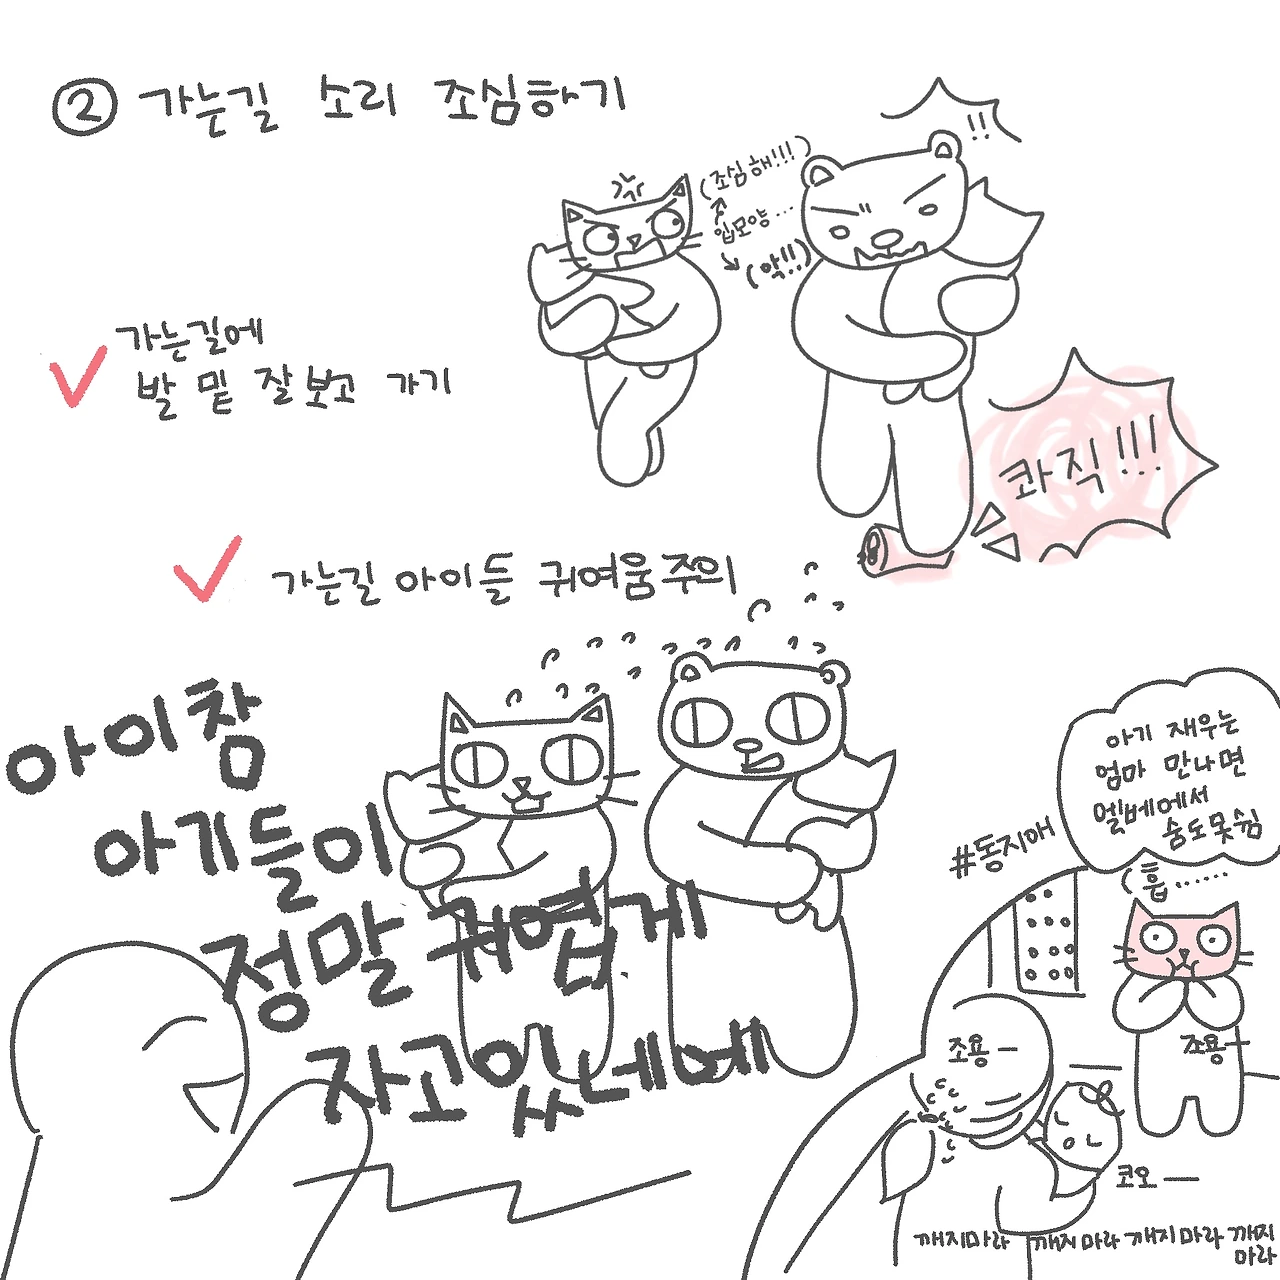 ② 가는길 소리 조심하기
!!
(조심해!!!)
입모양...
(악!!)
가는길에
발 밑 잘보고 가기
콰직!!!
가는길 아이들 귀여움주의
아이참
아기들이
정말 귀엽게
자고있네에
아기 재우는
엄마 만나면
엘베에서
숨도못쉼
#동지애
(흡......
조용—
조용—
코오—
깨지마라 깨지마라 깨지마라 깨지
마라